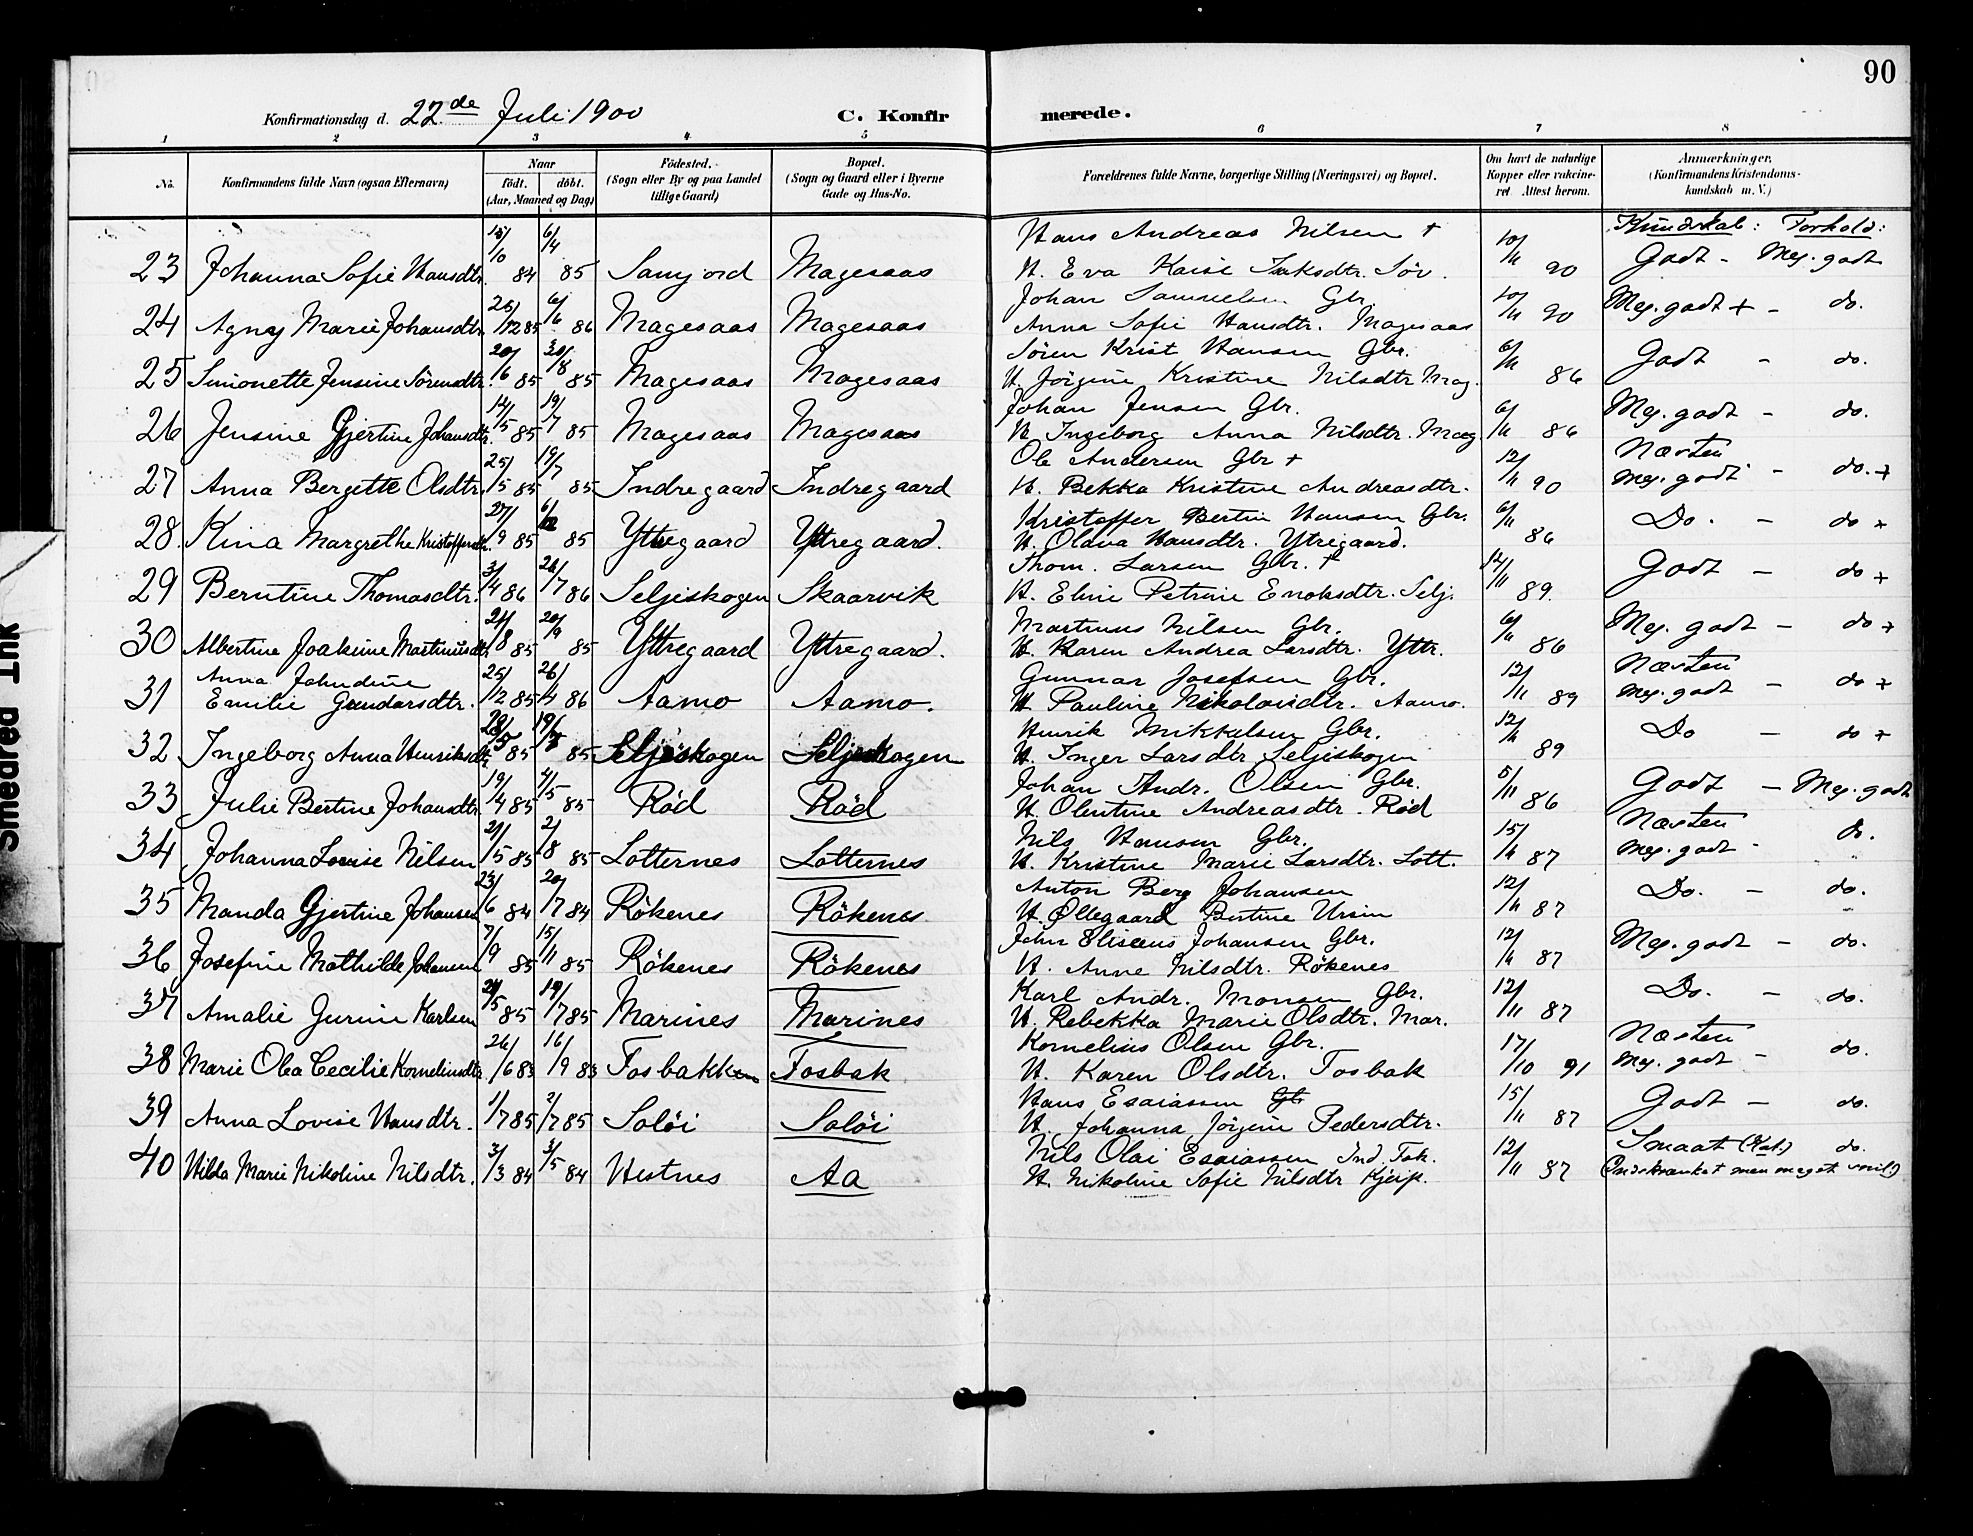 90
Konfirmationsdag d. 22de Juli 1900 C. Konfirmerede.
1 2 3 4 5 6 7 8
No. Konfirmandens fulde Navn (ogsaa Efternavn) Naar födt. döbt. (Aar, Maaned og Dag) Födested. (Sogn eller By og paa Landet tillige Gaard) Bopæl. (Sogn og Gaard eller i Byerne Gade og Hus-No. Forældrenes fulde Navne, borgerlige Stilling (Næringsvei) og Bopæl. Om havt de naturlige Kopper eller vakcineret Attest herom. Anmærkninger, (Konfirmandens Kristendomskundskab m. V.)
Kundskab: Forhold:
Hans Andreas Nilsen +
23 Johanna Sofie Hansdtr. /10 84 6/4 85 Sanjord Magesaas H. Eva Kaise Isaksdtr. Söv. 10/11 90 Godt - Meg. godt
Johan Samuelsen Gbr.
24 Agnes Marie Johansdtr. 26/12 85 6/6 86 Magesaas Magesaas Anna Sofie Hansdtr. Magesaas 10/11 90 Meg. godt + - do.
Sören Krist Hansen Gbr.
25 Simonette Jensine Sörensdtr. 20/6 85 30/8 85 Magesaas Magesaas H. Jörgine Kristine Nilsdtr Mag. 6/11 86 Godt - do.
Johan Jensen Gbr.
26 Jensine Gjertine Johansdtr. 14/5 85 19/7 85 Magesaas Magesaas H. Ingeborg Anna Nilsdtr. Mag. 6/11 86 Meg. godt - do.
Ole Andersen Gbr +
27 Anna Bergette Olsdtr. 25/5 85 19/7 85 Indregaard Indregaard H. Bekka Kristine Andreasdtr. 12/11 90 Næsten meg. godt - do. +
Kristoffer Bertin Hansen Gbr.
28. Kina Margrethe Kristoffersdtr. 27/9 85 6/12 85 Yttregaard Yttregaard. H. Olava Hansdtr. Ytregaard. 6/11 86 Do. - do +
Thom. Larsen Gbr. +
29 Berntine Thomasdtr. 3/4 86 26/7 86 Seljeskogen Skaarvik H. Eline Petrine Enoksdtr. Selj. 12/11 89. Godt - do +
Martinus Nilsen Gbr.
30 Albertine Joakime Martinusdtr. 24/8 85 20/9 85 Yttregaard Yttregaard. H. Karen Andrea Larsdtr. Yttr. 6/11 86 Meg. godt - do +
Anna Johndine Gunnar Josefsen Gbr.
31 Emilie Gundarsdtr. 25/12 85 26/4 86 Aamo Aamo. H Pauline Nikolaisdtr. Aamo. 12/11 89 Næsten meg. godt - do +
Henrik Mikkelsen Gbr.
32 Ingeborg Anna Henriksdtr. 28/5 85 19/7 85 Seljeskogen Seljeskogen H. Inger Larsdtr Seljeskogen 12/11 89 Do - do +
Johan Andr. Olsen Gbr.
33 Julie Bertine Johansdtr. 19/4 85 4/5 85 Röd Röd H. Olentine Andreasdtr. Röd 5/11 86 Godt - Meg. godt
Nils Hansen Gbr.
34 Johanna Lovise Nilsen 21/5 85 2/8 85 Lotternes Lotternes H. Kristine Marie Larsdtr. Lott. 15/11 87 Næsten meg. godt - do.
Anton Berg Johansen
35 Manda Gjertine Johansen 23/6 84 20/7 84 Rökenes Rökenes H. Ollegaard Bertine Ursin 12/11 87 Do. - do.
John Eliseus Johansen Gbr.
36 Josefine Mathilde Johansen 7/9 85 15/11 85 Rökenes Rökenes H. Anne Nilsdtr. Rökenes 12/11 87 Meg. godt - do.
Karl Andr. Monsen Gbr.
37 Amalie Jurine Karlsen /5 85 19/7 85 Marines Marines H. Rebekka Marie Olsdtr. Mar. 12/11 87 Do. - do.
Kornelius Olsen Gbr.
38 Marie Olea Cecilie Kornelinsdtr. 26/6 83 16/9 83 Fosbakken Fosbak H. Karen Olsdtr. Fosbak 17/10 91 Næsten meg. godt - do.
Hans Esaiassen Gb
39 Anna Lovise Hansdtr. 1/7 85 2/7 85 Solöi Solöi H. Johanna Jörgine Pedersdtr. 15/11 87 Godt - do.
Nils Olai Esaiassen Ind. Fosk.
40 Hilda Marie Nikoline Nilsdtr. 3/3 84 3/5 84 Hestnes Aa H. Nikoline Sofie Nilsdtr Kjeip. 12/11 87 Smaat (Kat.) do. (Indskrænket men meget)